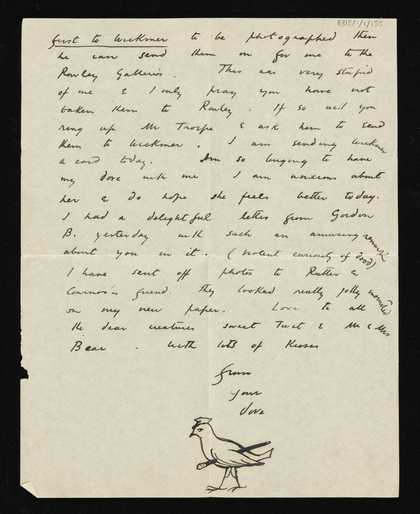 first to Wickmer to be photographed then
he can send them on for me to the
Rowley Galleries. This was very stupid
of me & I only pray you have not
taken them to Rowley. If so will you
ring up Mr Thorpe & ask him to send
them to Wickmer. I am sending Wickmer
a card today. Am so longing to have
my dove with me I am anxious about
her & do hope she feels better today.
I had a delightful letter from Gordon
B. yesterday with such an amusing remark
about you in it. (violent curiosity of Dove)
I have sent off photos to Rutter &
friend. They looked really jolly mounted
on my new paper. Love to all
the dear creatures sweet & Mr & Mrs
Bear. With lots of Kisses
from
your
dove